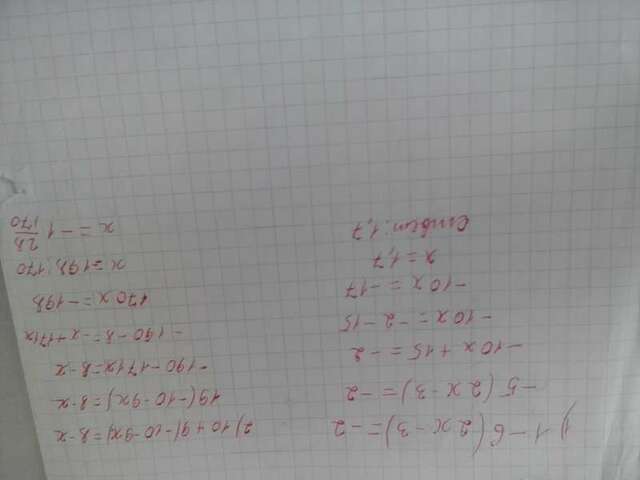 1) 1-6(2x-3)=-2
-5(2x-3)=-2
-10x+15=-2
-10x=-2-15
-10x=-17
x=1,7
Ответ: 1,7
2) 10+9(-10-9x)=8-x
19(-10-9x)=8-x
-190-171x=8-x
-190-8=-x+171x
170x=-198
x=198:170
x=-1 28/170